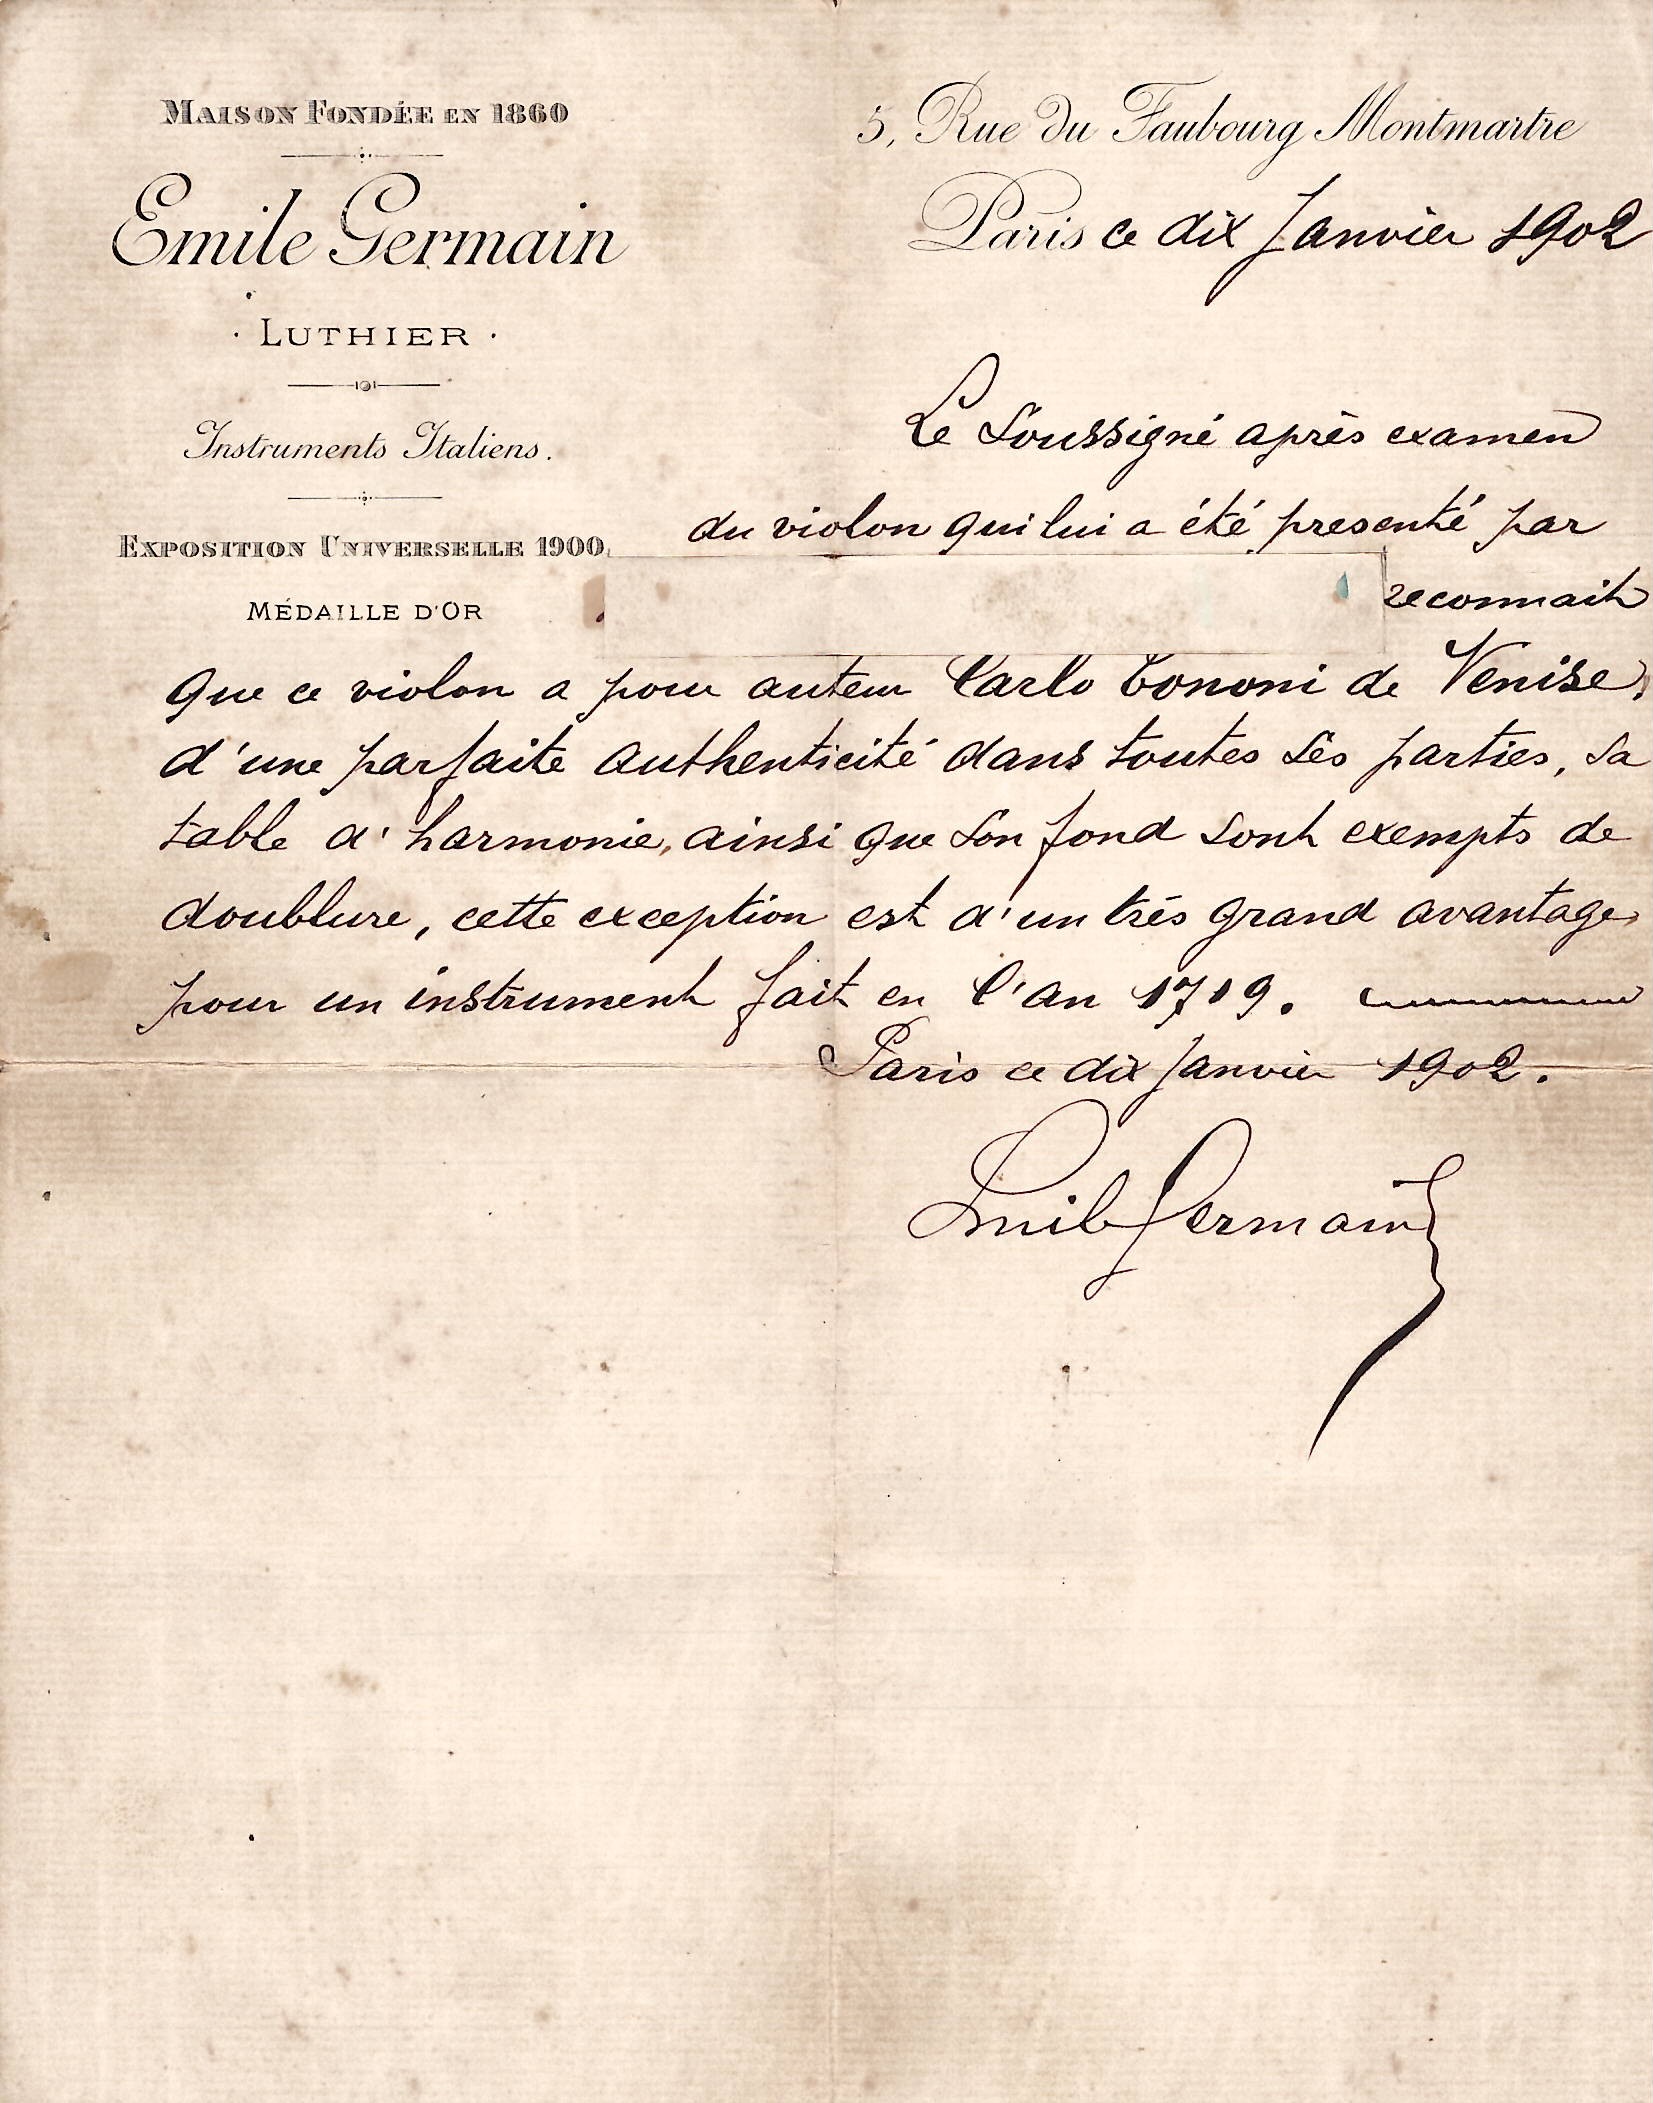 MAISON FONDÉE EN 1860
Emile Germain
· LUTHIER ·
Instruments Italiens.
EXPOSITION UNIVERSELLE 1900
MÉDAILLE D'OR
5, Rue du Faubourg Montmartre
Paris ce dix Janvier 1902
Le Soussigné après examen
du violon qui lui a été presenté par
reconnait
que ce violon a pour auteur Carlo Tononi de Venise,
d'une parfaite authenticité dans toutes ses parties, sa
table d'harmonie, ainsi que son fond sont exempts de
doublure, cette exception est d'un très grand avantage
pour un instrument fait en l'an 1719.
Paris ce dix Janvier 1902.
Emile Germain